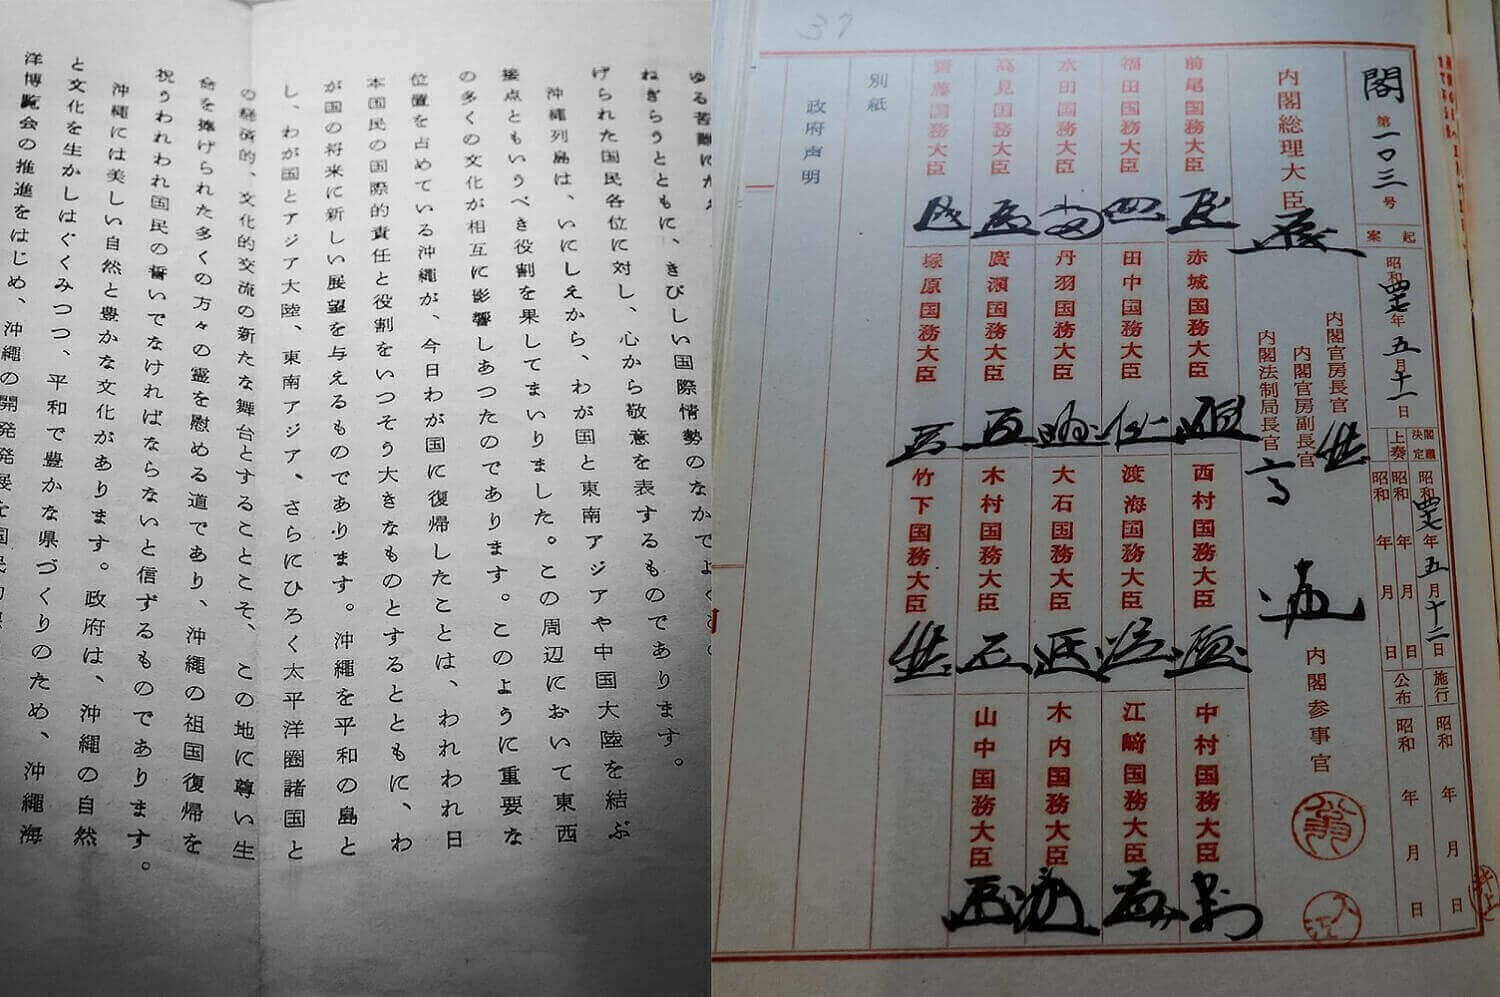 閣 第一〇三号
起案 昭和四七年五月十一日
閣議決定 昭和四七年五月十二日
上奏 昭和 年 月 日
昭和 年 月 日
施行 昭和 年 月 日
公布 昭和 年 月 日
内閣官房長官
内閣官房副長官
内閣法制局長官
内閣参事官
内閣総理大臣
前尾国務大臣
福田国務大臣
水田国務大臣
高見国務大臣
齋藤国務大臣
赤城国務大臣
田中国務大臣
丹羽国務大臣
廣瀬国務大臣
塚原国務大臣
西村国務大臣
渡海国務大臣
大石国務大臣
木村国務大臣
竹下国務大臣
中村国務大臣
江﨑国務大臣
木内国務大臣
山中国務大臣
別紙
政府声明
37
ゆる苦難にた
ねぎらうとともに、きびしい国際情勢のなかでよく
げられた国民各位に対し、心から敬意を表するものであります。
沖繩列島は、いにしえから、わが国と東南アジアや中国大陸を結ぶ
接点ともいうべき役割を果してまいりました。この周辺において東西
の多くの文化が相互に影響しあつたのであります。このように重要な
位置を占めている沖繩が、今日わが国に復帰したことは、われわれ日
本国民の国際的責任と役割をいつそう大きなものとするとともに、わ
が国の将来に新しい展望を与えるものであります。沖繩を平和の島と
し、わが国とアジア大陸、東南アジア、さらにひろく太平洋圏諸国と
の経済的、文化的交流の新たな舞台とすることこそ、この地に尊い生
命を捧げられた多くの方々の霊を慰める道であり、沖繩の祖国復帰を
祝うわれわれ国民の誓いでなければならないと信ずるものであります。
沖繩には美しい自然と豊かな文化があります。政府は、沖繩の自然
と文化を生かしはぐくみつつ、平和で豊かな県づくりのため、沖繩海
洋博覧会の推進をはじめ、沖繩の開発発展を国民的